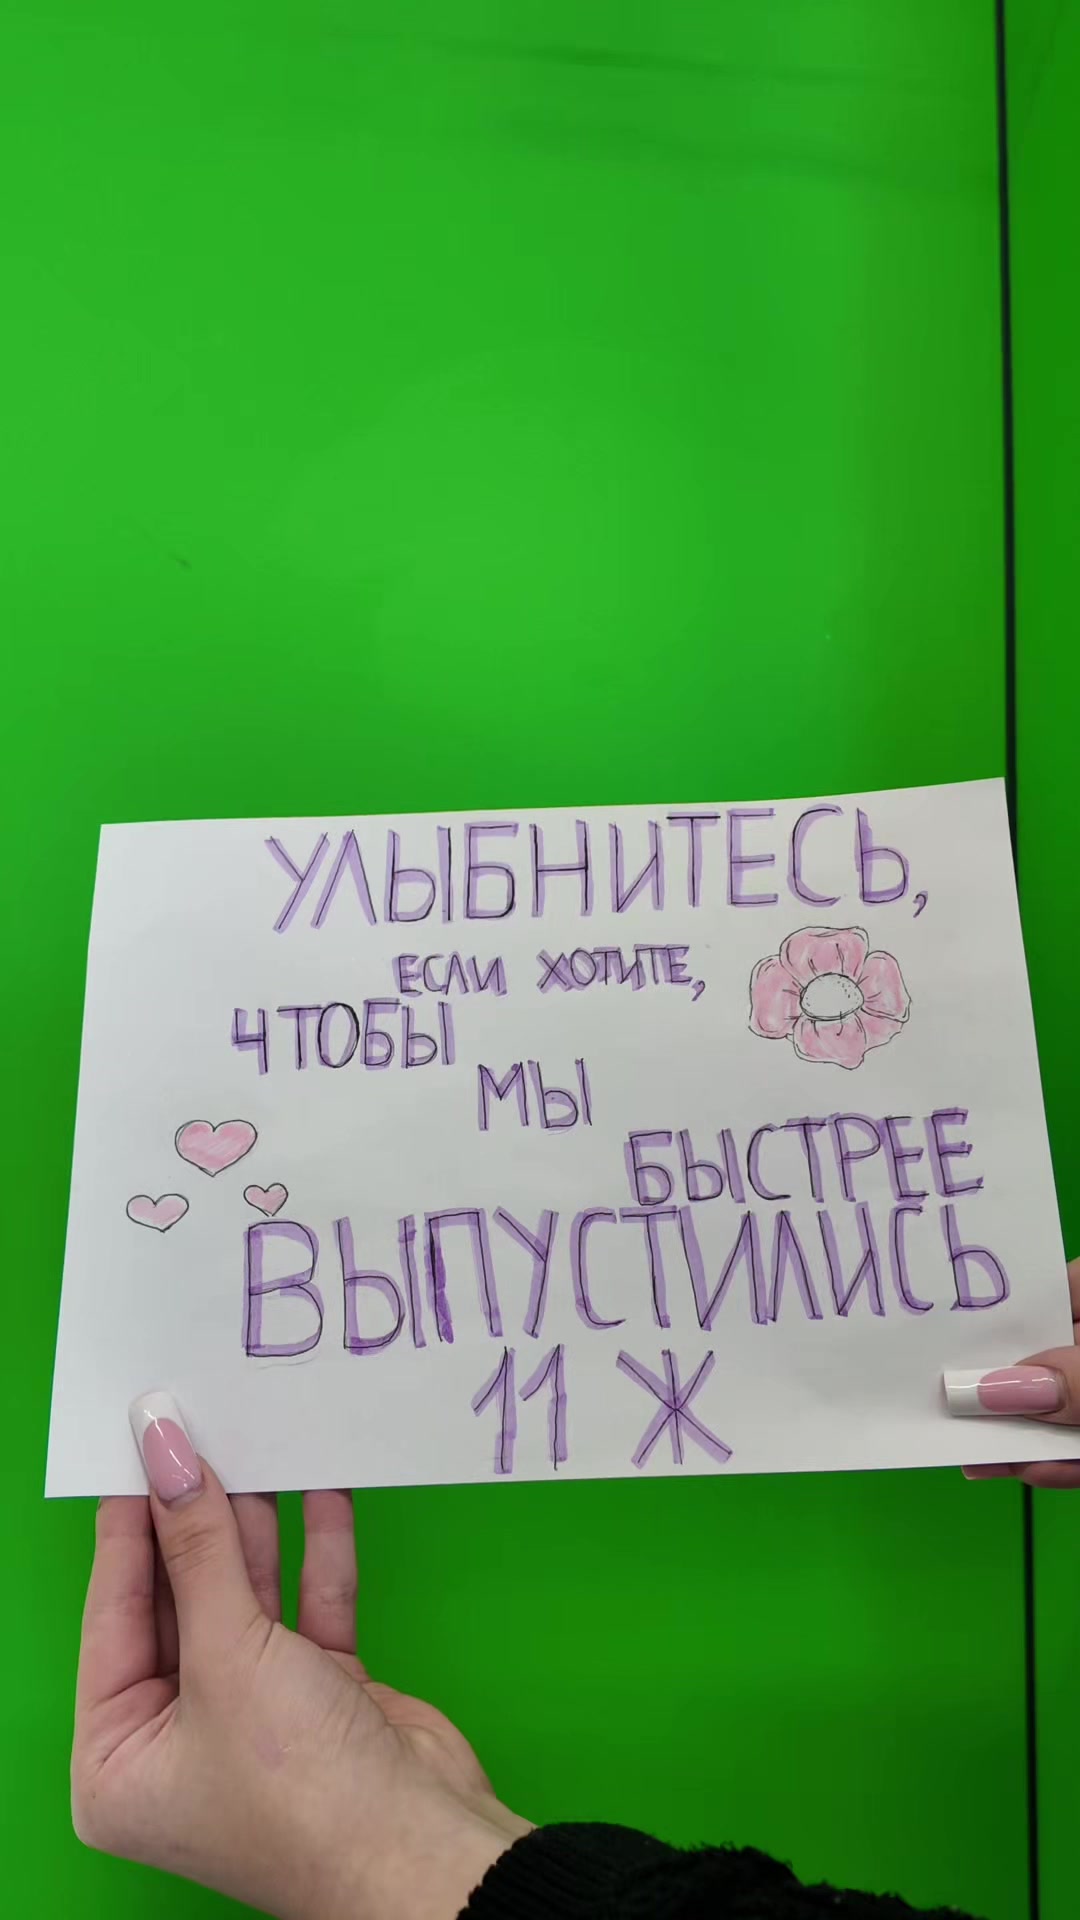 УЛЫБНИТЕСЬ,
ЕСЛИ ХОТИТЕ,
ЧТОБЫ
МЫ
БЫСТРЕЕ
ВЫПУСТИЛИСЬ
11 Ж